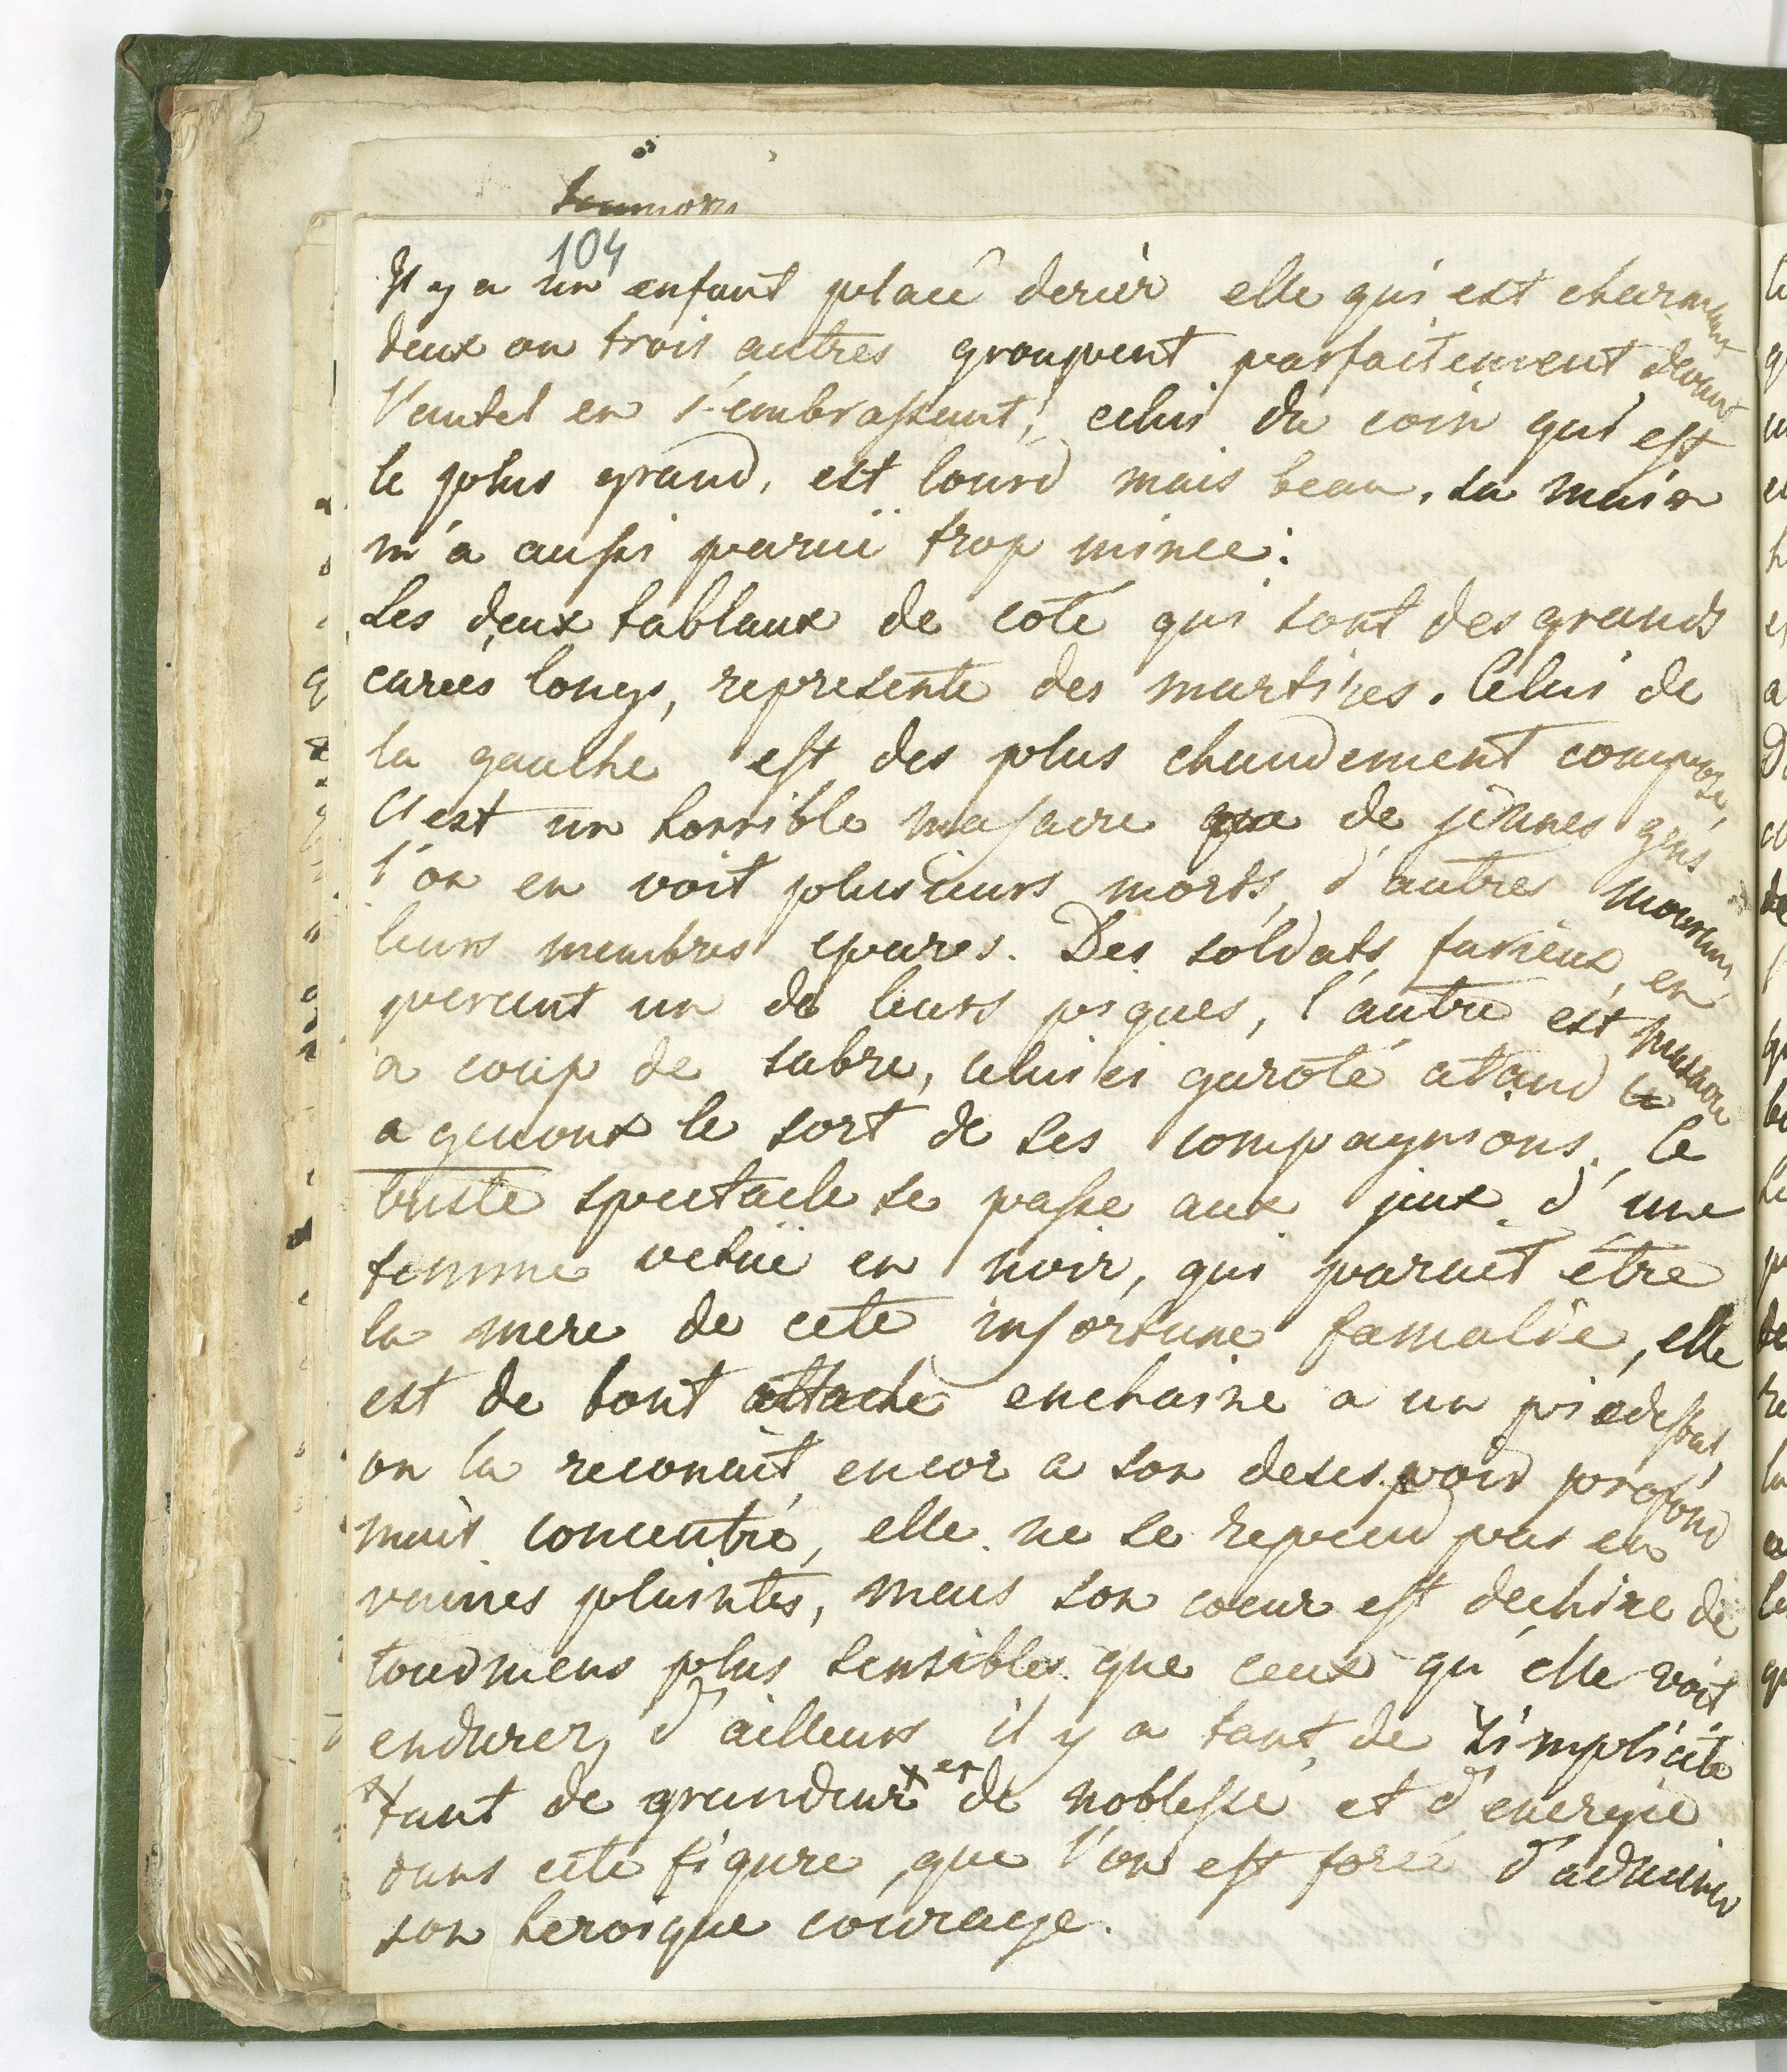 104
Il y a un enfant placê derièr elle qui est charmant
deux ou trois autres groupent parfaitement devant
l'autel en s'embrassant; celui du coin qui est
le plus grand, est lourd mais beau, sa main
m'a aussi paruë trop mince.
Les deux tableaux de coté qui sont des grands
carées longs, represente des martires. Celui de
la gauche est des plus chaudement composé,
C'est un horrible masacre de jeunes gens
l'on en voit plusieurs morts, d'autres mourans
leurs membres epares. Des soldats furieux, en
percent un de leurs piques, l'autre est
a coup de sabre, celui ci garoté atand
a genoux le sort de ses compagnions. Ce
triste spectacle se passe aux jeux d'une
femme vetuë en noir, qui parait être
la mere de cete infortune famalie, elle
est de bout attaché enchaine a un piedestal,
on la reconait encor a son desespoir profond
mais concentré, elle ne se repend pas en
vaines plaintes, mais son coeur est dechire de
tourmens plus sensibles que ceux qu'elle voit
endurer, d'ailleurs il y a tant de simplicite
tant de grandeur et de noblesse et d'energie
dans cete figure, que l'on est forcé d'admirer
son heroique courage.